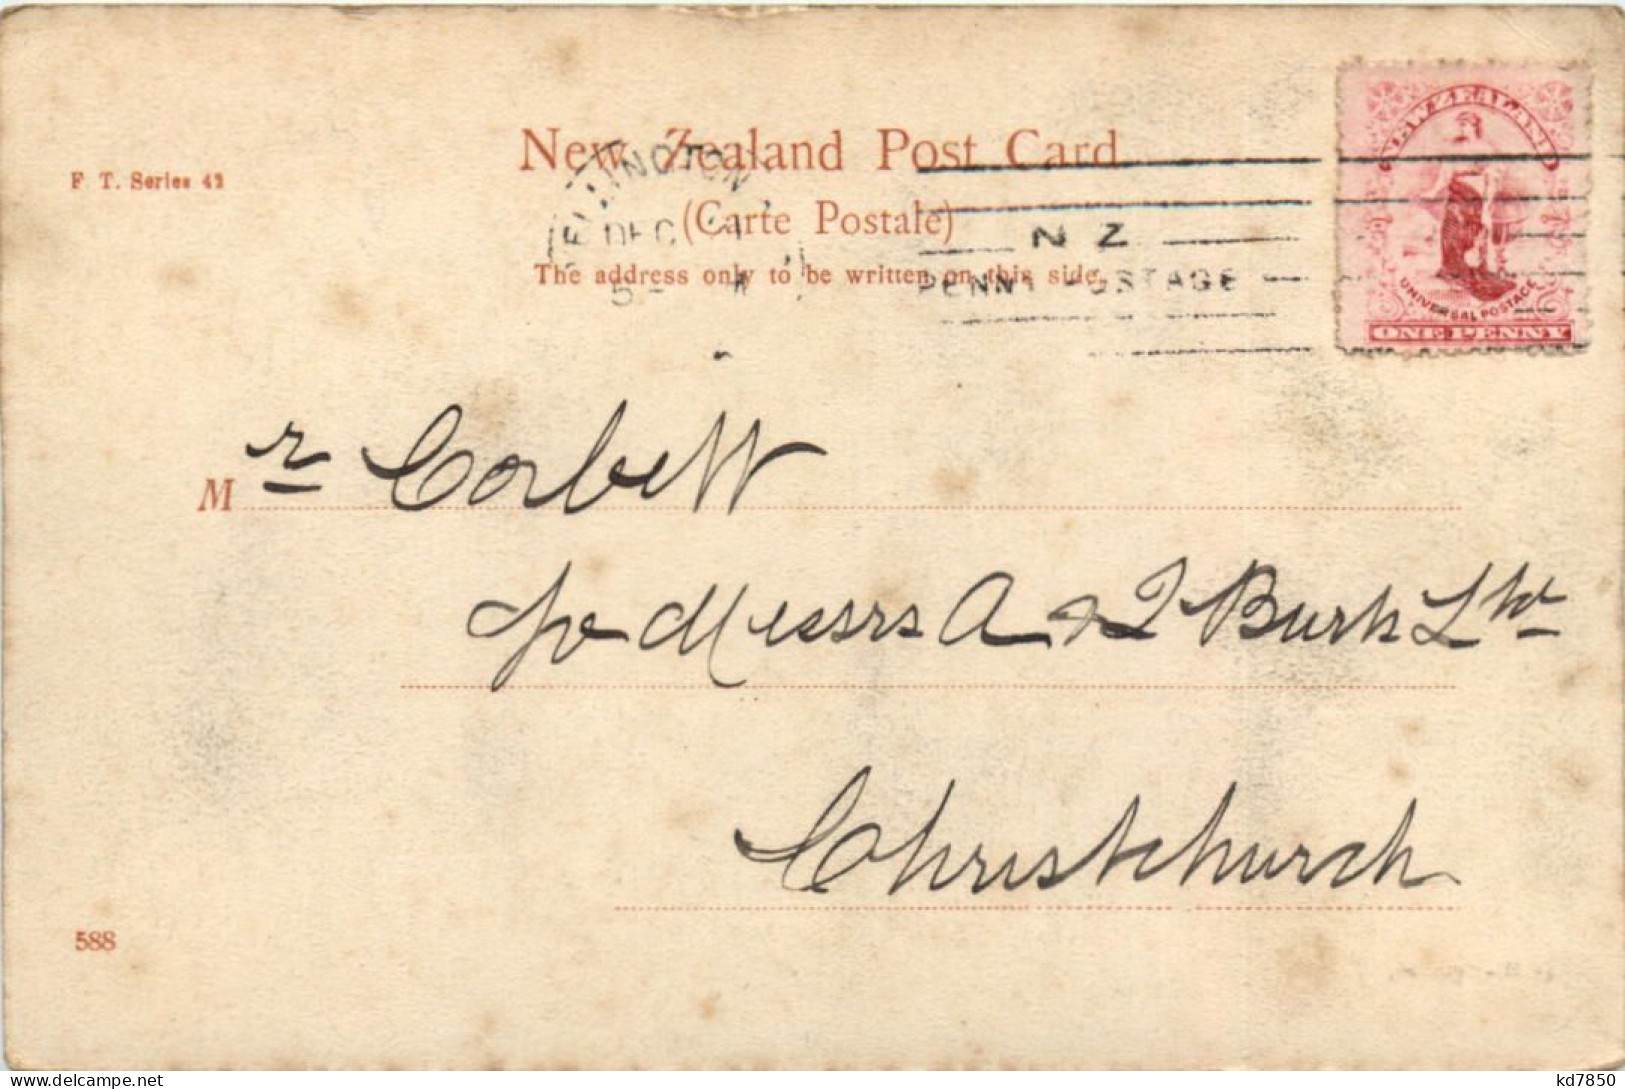 New Zealand Post Card
F. T. Series 42
(Carte Postale)
The address only to be written on this side.
WELLINGTON
DEC
5-
N Z
PENNY POSTAGE
NEW ZEALAND
UNIVERSAL POSTAGE
ONE PENNY
Mr Corbett
c/o Messrs A & T Burt Ltd
Christchurch
588
kd7850